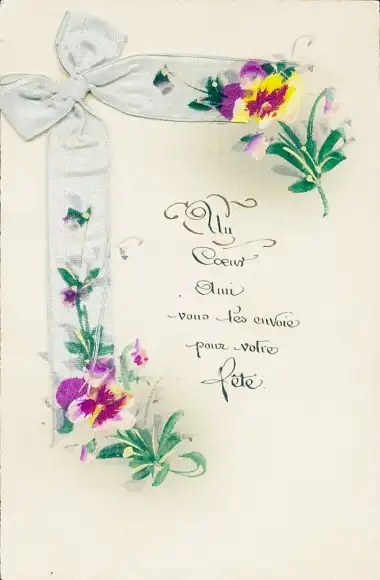 Un
Coeur
Ami
vous les envoie
pour votre
fête.